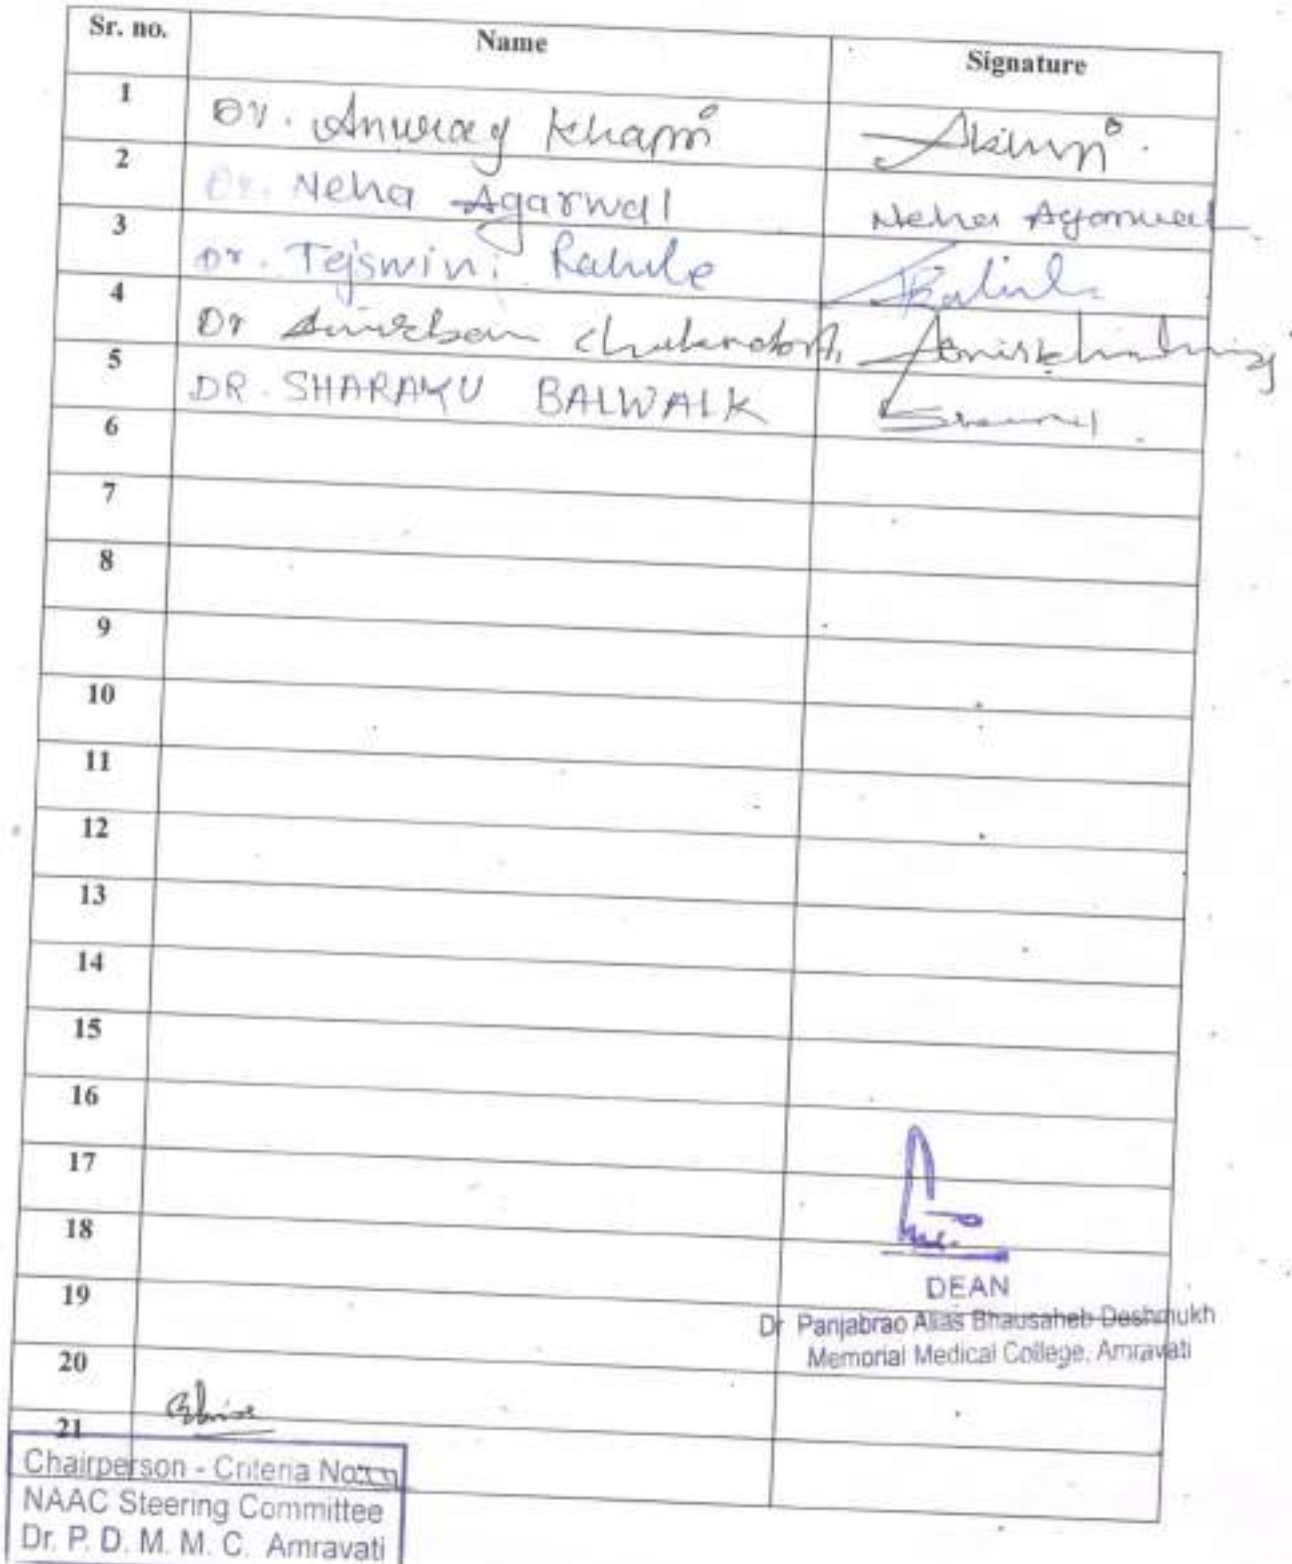 Sr. no. Name Signature
1 Dr. Anurag Khapri
2 Dr. Neha Agarwal Neha Agarwal
3 Dr. Tejswini Rahule
4 Dr Anirban
5 DR. SHARAYU BALWALK
6
7
8
9
10
11
12
13
14
15
16
17
18
DEAN
19
Dr. Panjabrao Alias Bhausaheb Deshmukh
Memorial Medical College, Amravati
20
21
Chairperson - Criteria No.
NAAC Steering Committee
Dr. P. D. M. M. C. Amravati